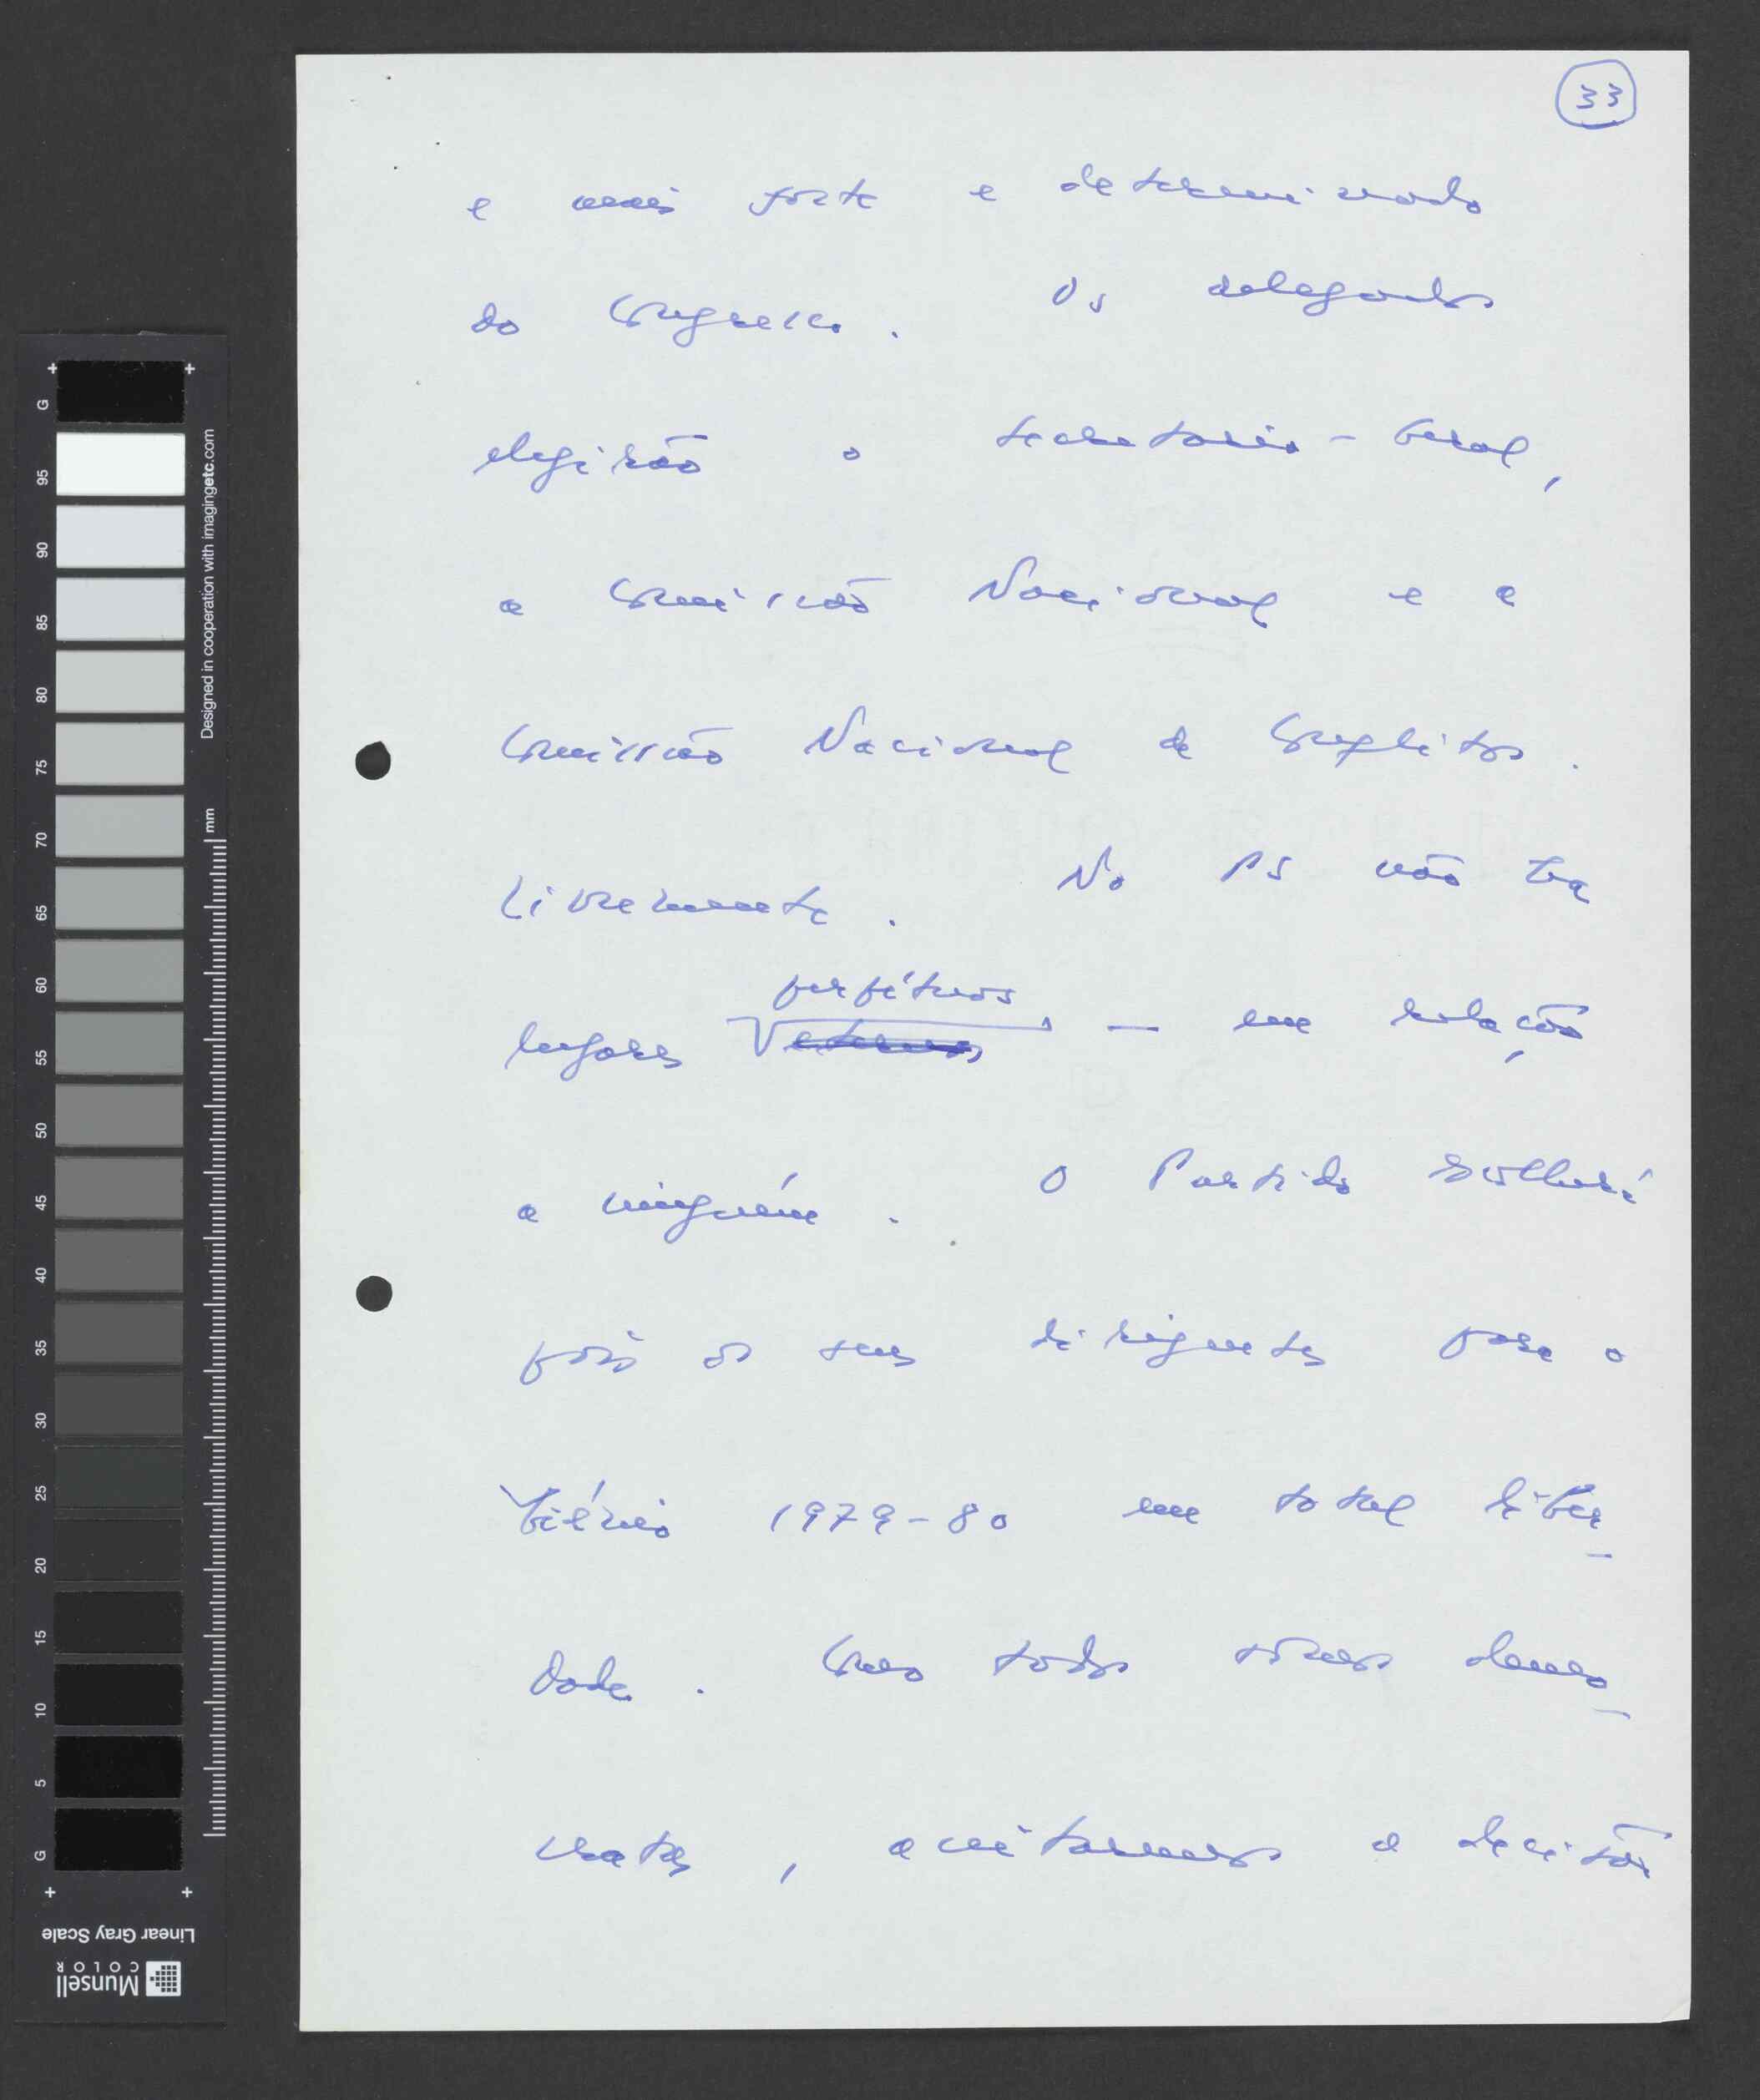 33
e mais forte e determinado
do Congresso. Os delegados
elegirão o secretário-Geral,
a Comissão Nacional e a
Comissão Nacional de Conflitos.
Livremente. No PS não há
perpétuos
lugares — em relação
a ninguém. O Partido escolherá
pois os seus dirigentes para o
biénio 1979-80 em total liber-
dade. Como todos somos demo-
cratas, aceitaremos a decisão
G
95
90
85
80
75
70
65
60
55
50
45
40
35
30
25
20
15
10
5
G
Designed in cooperation with imagingetc.com
mm
Linear Gray Scale
Munsell
COLOR